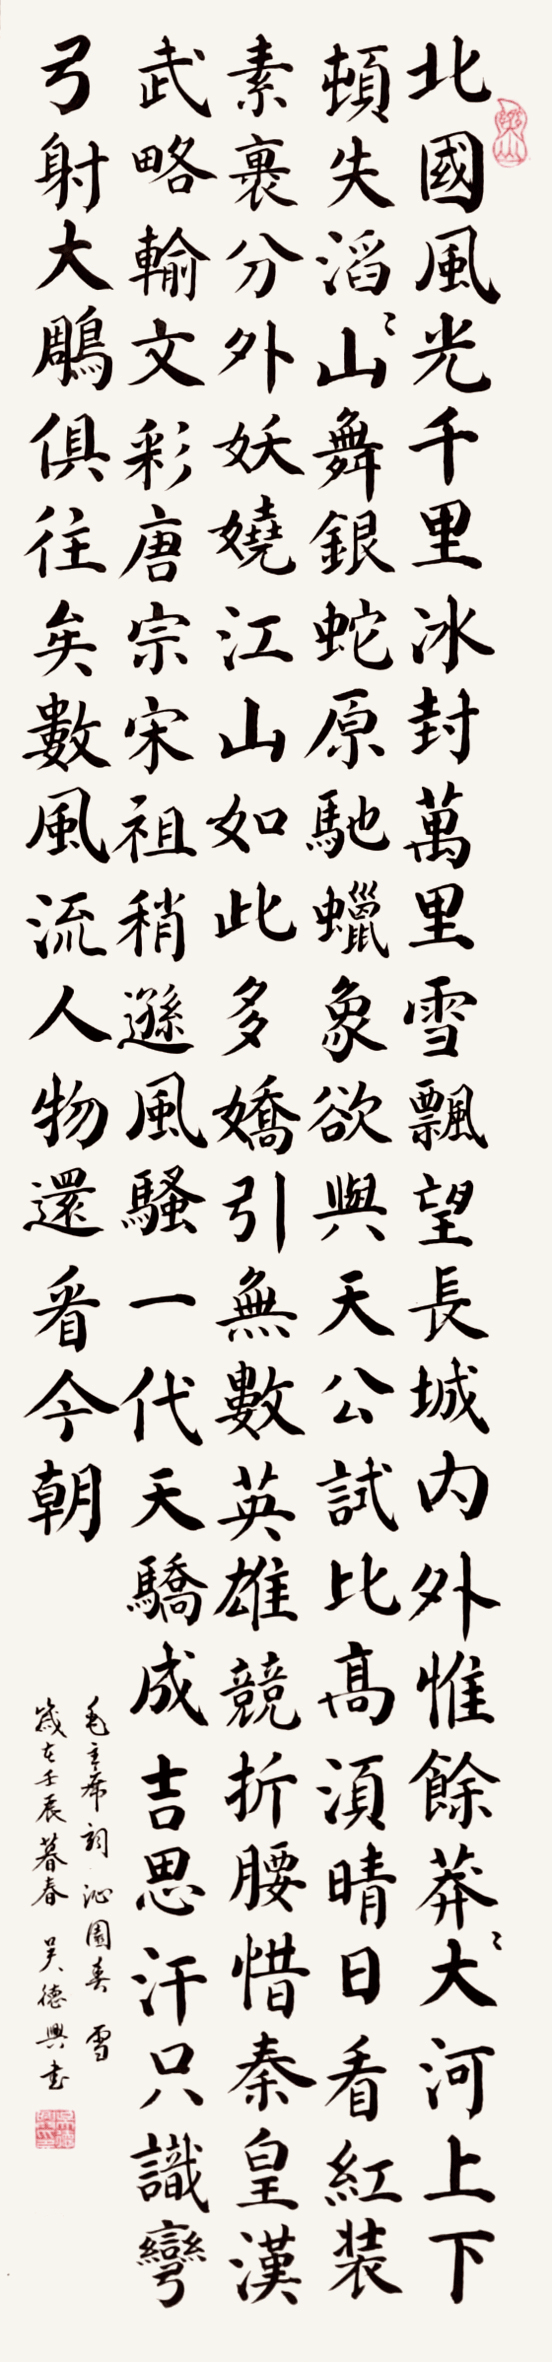 北國風光千里冰封萬里雪飄望長城内外惟餘莽〻大河上下
頓失滔〻山舞銀蛇原馳蠟象欲與天公試比髙湏晴日看紅装
素裹分外妖嬈江山如此多嬌引無數英雄競折腰惜秦皇漢
武略輸文彩唐宗宋祖稍遜風騷一代天驕成吉思汗只識彎
弓射大鵰俱往矣數風流人物還看今朝
毛主席詞 沁園春 雪
歲在壬辰暮春 吴德興书